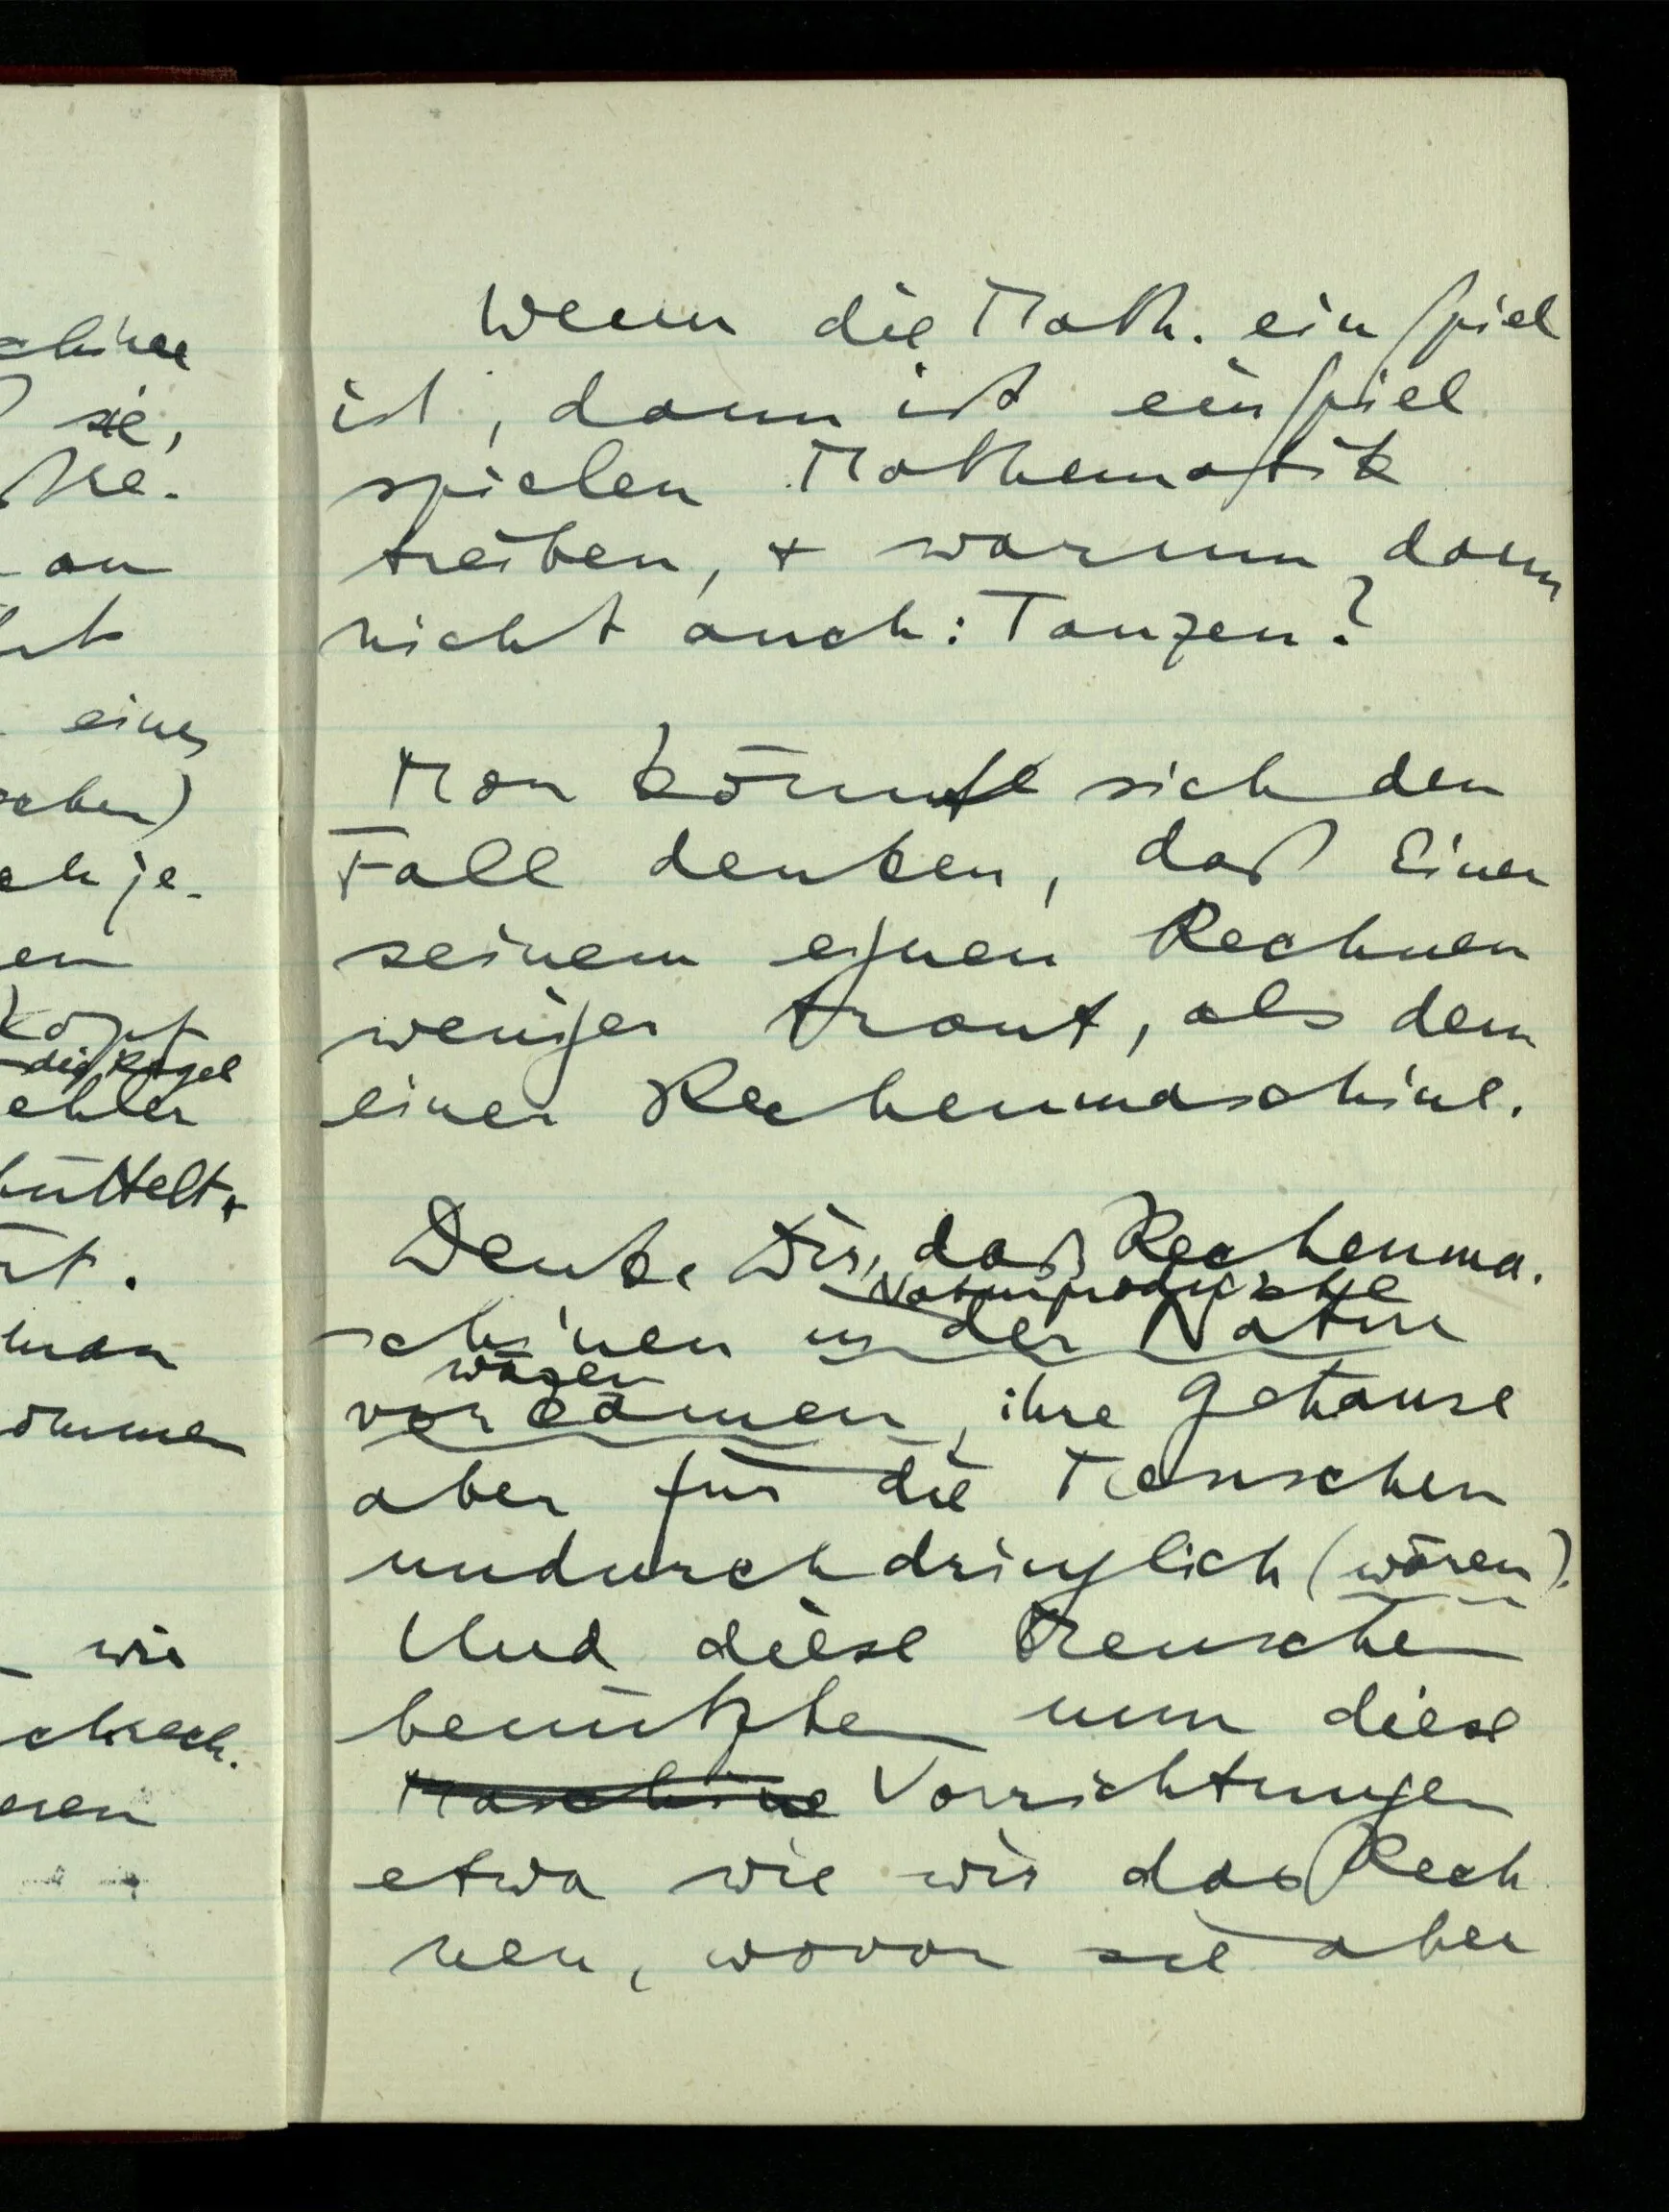 chine
sie,
an
eines
je-
en
die Kugel
üttelt +
.
man
ommen
wie
Wenn die Math. ein Spiel
ist, dann ist ein Spiel
spielen Mathematik
treiben, + warum dann
nicht auch: Tanzen?
Man könnte sich den
Fall denken, daß Einer
seinem eignen Rechnen
weniger traut, als dem
einer Rechenmaschine.
Denke Dir, daß Rechenma-
Naturprodukte
schinen in der Natur
wären
vorkämen, ihre Gehäuse
aber für die Menschen
undurchdringlich (wären).
Und diese Menschen
benützten nun diese
Maschine Vorrichtungen
etwa wie wir das Rech
nen, wovon sie aber